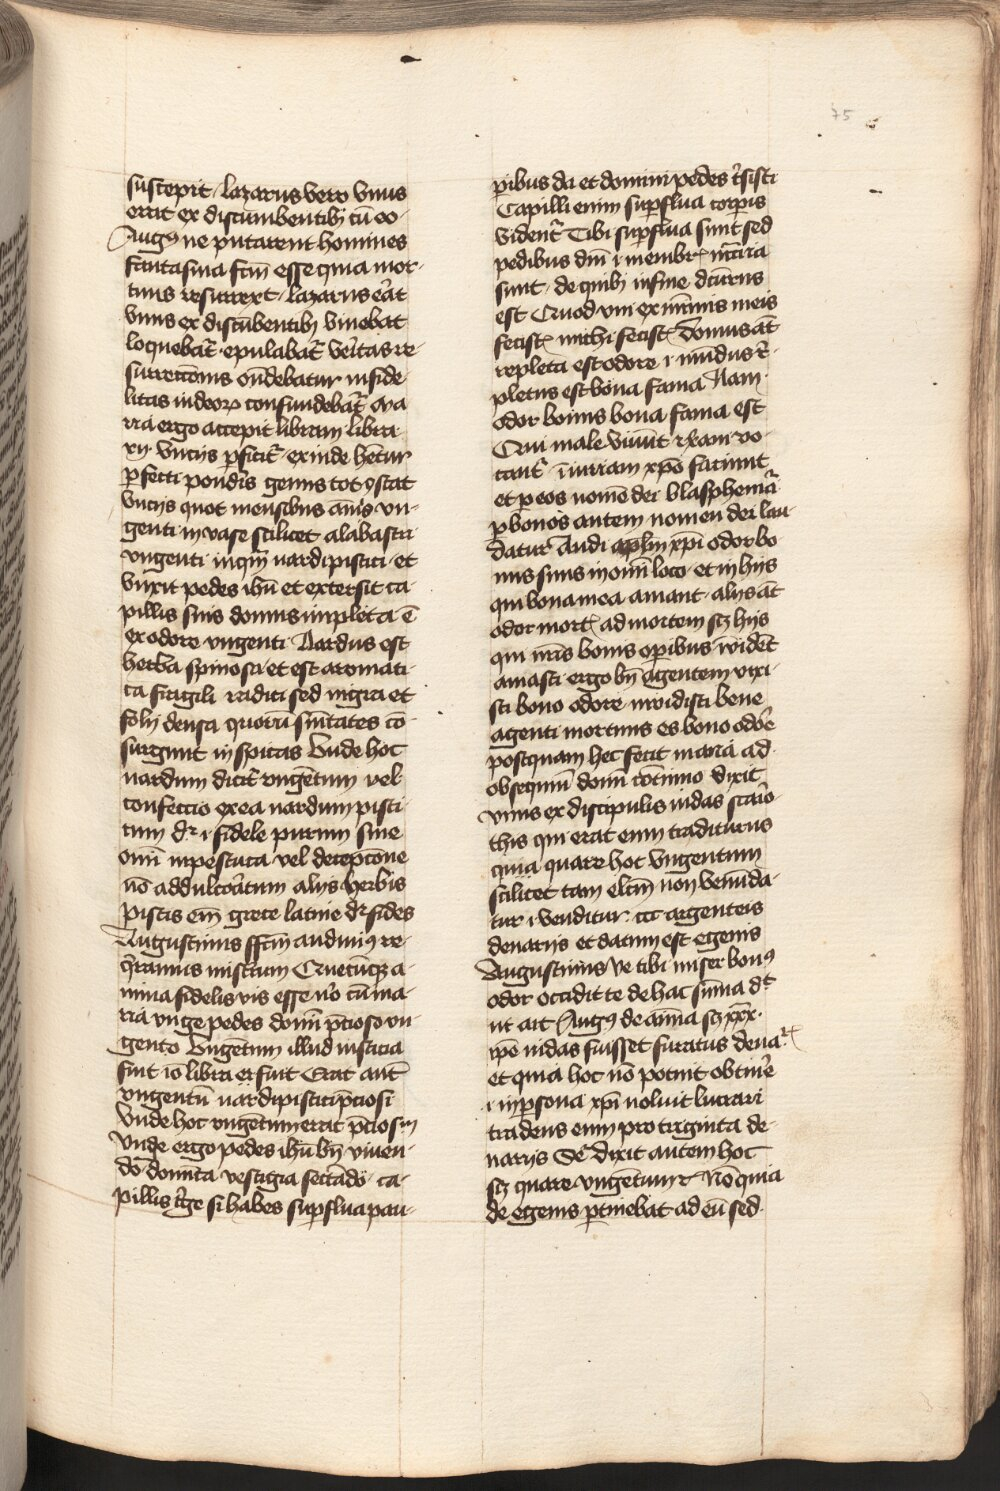 75
suscepit · lazarus vero vnus
erat ex discumbentibꝫ cū eo ·
Augꝰ ne putarent homines
fantasma fcm̄ esse quia mor-
tuus resurrexit · lazarus erat
vnus ex discūbentibꝫ viuebat
loquebat᷑ · epulabat᷑ veritas re-
surrectionis on̄debatur infide-
litas iudeoꝝ confundebat᷑ Ma
ria ergo accepit libram · libra
xij · vncijs ꝑficit᷑ · exinde hētur
ꝑfecti pondr̄is genus tot ꝯstat
vncijs quot mensibus ann̄s · vn-
genti in vase scilicet alabastri
vngenti inqm̄ nardi pistici · et
vnxit pedes ihū et extersit ca
pillis suis domus impleta ē
ex odore vngenti · Nardus est
herba spinosa et est aromati-
ca fragili radici sed nigra et
folij densa quoru sūitates cō-
surgunt in spicas Vnde hoc
nardum dicit᷑ vngētum vel
confectio ex ea nardum pisti-
cum dr̄ · i fidele purum sine
omni inpostura vel deceptione
nō addulcoratum alijs herbis
Pistis em̄ grece latine dr̄ fides
Augustinus ffcm̄ audiuiꝰ re-
q̄ramus misteriū Quecūqꝫ a-
nima fidelis vis esse vo cū ma-
ria vnge pedes domī p̄cioso vn-
gento Vngētum illud iusticia
fuit iō libra ei fuit Erat aut᷑
vngentū nardi pistici p̄ciosi
Vnde hoc vngētum erat p̄ciosum
Vnde ergo pedes ihū bn̄ viuen-
do · domīca vestigia sectādo · ca-
pillis t᷑ge si habes suꝑflua pau-
ꝑibus da et domini pedes t᷑sisti
Capilli enim suꝑflua corꝑis
vident᷑ Tibi suꝑflua sunt sed
pedibus dm̄ i membr̄ nccīa
sunt · de quibꝫ in fine dcūrus
est Quod vni ex minimis meis
fecist᷑ michi fecist᷑ Domus aūt
repleta est odore · i mūdus r̄-
pletus est bona fama Nam
odor bonus bona fama est
Qui male viuūt et xp̄iani vo-
cant᷑ īiuriam xp̄o faciunt
et ꝑ eos nomē dei blasphemat᷑
ꝑ bonos autem nomen dei lau
datur Audi aplm̄ xp̄i odor bo
nus sumus in omī loco · et in hijs
qui bona mea amant · alijs aūt
odor mort᷑ ad mortem scꝫ hijs
qui nr̄is bonis oꝑibus īuidēt
amasti ergo bn̄ agentem vixi-
sti bono odore · inuidisti bene
agenti mortuus es bono odoē
postquam hec fecit maria ad
obsequiū domī cōtinuo dixit
vnus ex discipulis iudas scario-
this qui erat eum traditurus
quia quare hoc vngentum
scilicet tam elcm̄ non venūda-
tur · i · venditur · ccc argenteis
denarijs et datum est egenis
Augustinus ve tibi miser bonꝰ
odor occidit te de hac summa dr̄
ut ait Augꝰ de anima scꝫ xxx ·
ip̄e iudas fuisset furatus denar᷑
et quia hoc nō potuit obtinē
i in ꝑsona xp̄i noluit lucrari
tradens eum pro triginta de-
narijs Sꝫ dixit autem hoc
scꝫ quare vngētum ⁊c Nō quia
de egenis ꝑtinebat ad eū sed ·